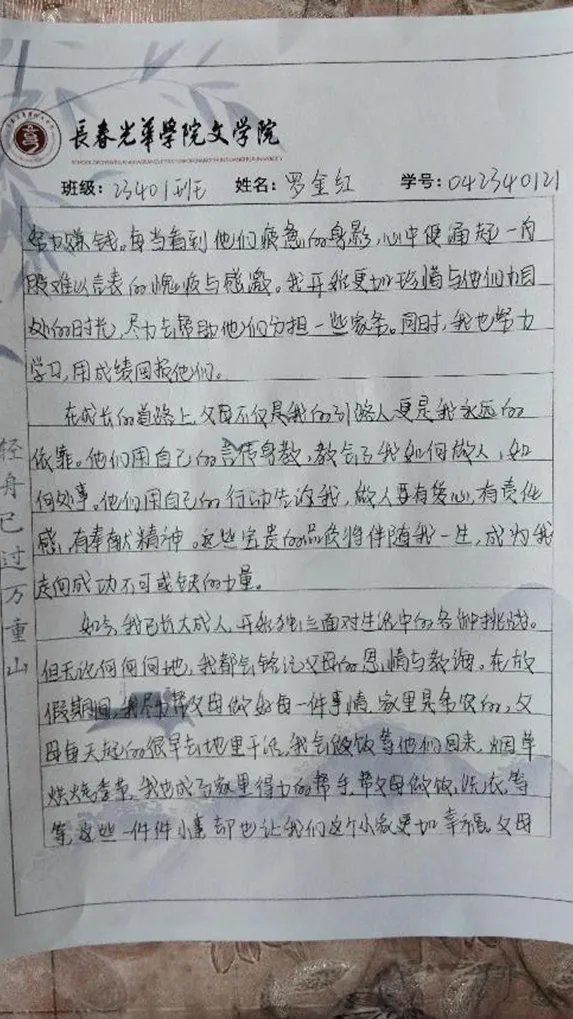 長春光華學院文学院
班级：23401班 姓名：罗金红 学号：042340121
努力赚钱。每当看到他们疲惫的身影，心中便涌起一内
股难以言表的愧疚与感激。我开始更加珍惜与他们相
处的时光，尽力去帮助他们分担一些家务。同时，我也努力
学习，用成绩回报他们。
在成长的道路上，父母不仅是我的引路人更是我永远的
依靠。他们用自己的言传身教，教会了我如何做人，如
何处事。他们用自己的行动告诉我，做人要有爱心，有责任
感，有奉献精神。这些宝贵的品质将伴随我一生，成为我
走向成功不可或缺的力量。
如今，我已长大成人，开始独立面对生活中的各种挑战。
但无论何时何地，我都会铭记父母的恩情与教诲。在放
假期间，我尽力帮父母做好每一件事情，家里是务农的，父
母每天起的很早去地里干活，我会做饭等他们回来，烟草
烘烤季节，我也成了家里得力的帮手，帮父母做饭，洗衣，等
等，这些一件件小事却也让我们这个小家更加幸福。父母
轻舟已过万重山